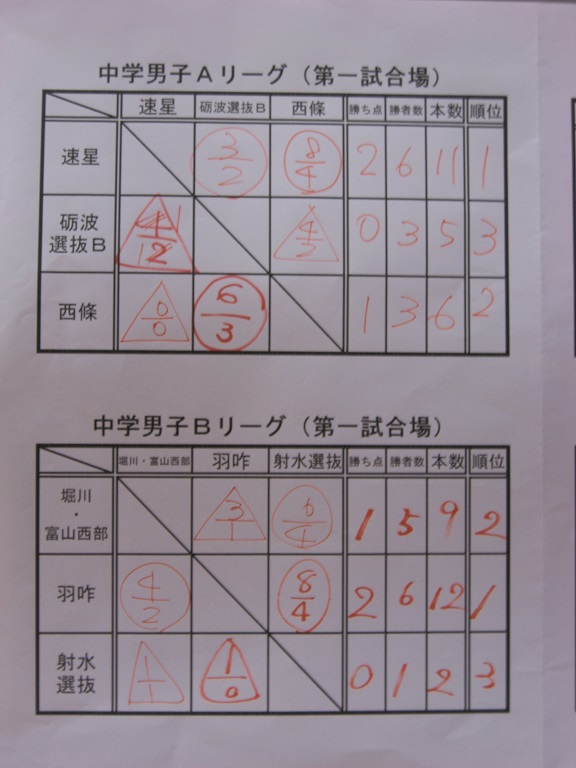 中学男子Aリーグ（第一試合場）
速星 砺波選抜B 西條 勝ち点 勝者数 本数 順位
速星 3/2 8/4 2 6 11 1
砺波
選抜B 0 3 5 3
西條 0/0 6/3 1 3 6 2
中学男子Bリーグ（第一試合場）
堀川・富山西部 羽咋 射水選抜 勝ち点 勝者数 本数 順位
堀川
・
富山西部 3/1 6/4 1 5 9 2
羽咋 4/2 8/4 2 6 12 1
射水
選抜 1/1 1/0 0 1 2 3